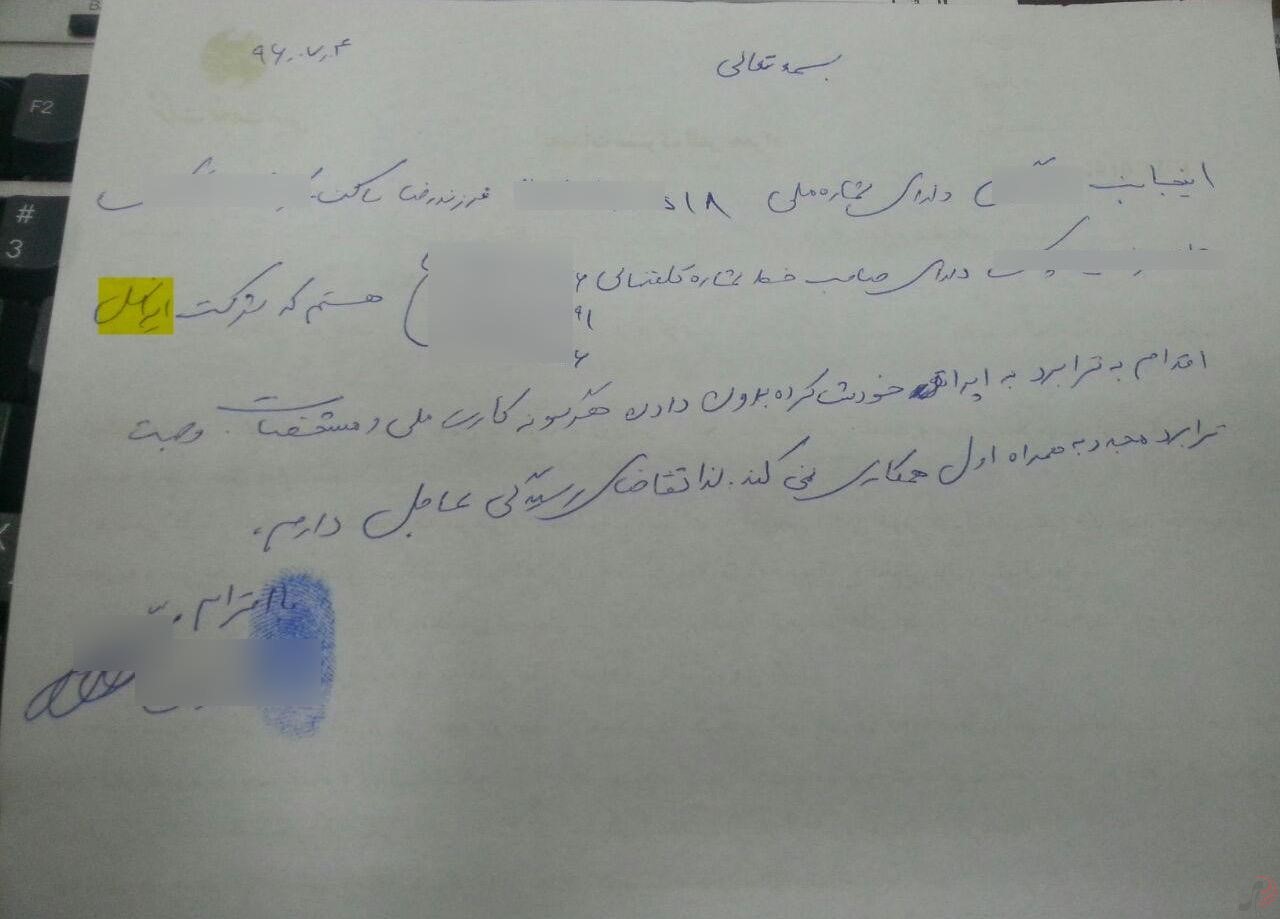 بسمه تعالی
۹۶.۰۷.۰۴
اینجانب دارای شماره ملی ۱۸ فرزند رضا ساکن
دارای صاحب خط شماره تلفنهای هستم که شرکت ایرانسل
اقدام به ترابرد به اپراتور خودش کرده بدون دادن هرگونه کارت ملی و مشخصات. و جهت
ترابرد مجدد به همراه اول همکاری نمی کند. لذا تقاضای رسیدگی عاجل دارم.
با احترام
F2
#
3